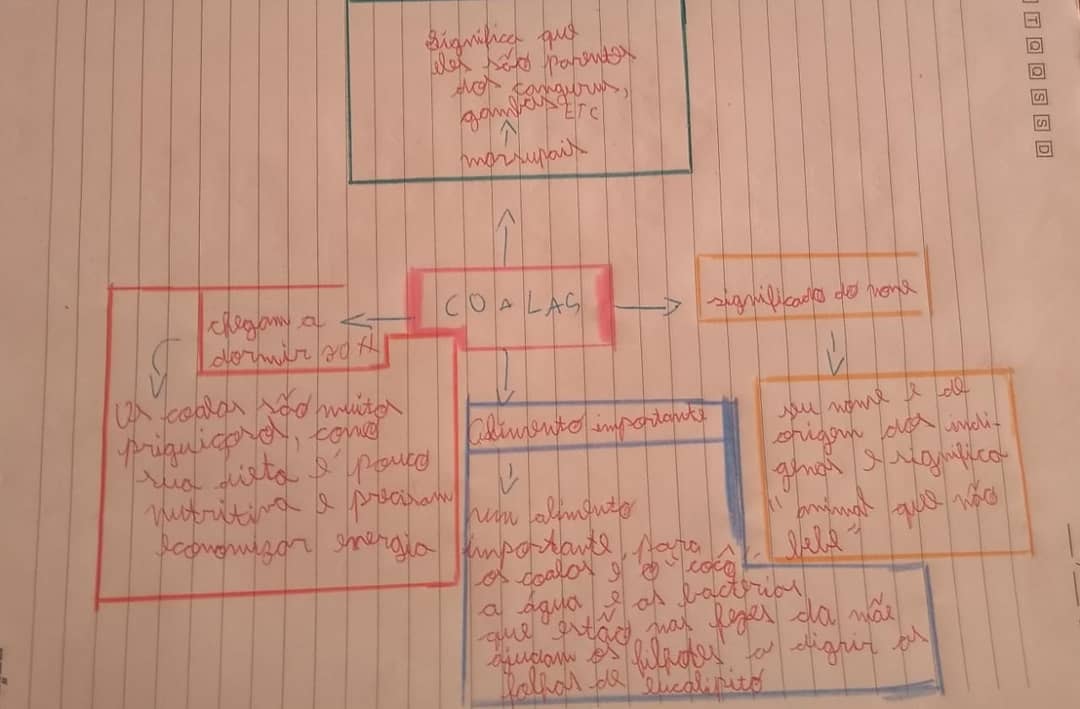 significa que
eles são parentes
dos cangurus,
gambás ETC
marsupais
T Q Q S S D
COALAS
significado do nome
seu nome é de
origem dos indi-
genas e significa
"animal que não
bebe"
chegam a
dormir 20 H
Os coalas são muitos
priguiçosos, como
sua dieta é pouco
nutritiva e precisam
economizar energia
Alimento importante
um alimento
importante, para
os coalas é o "cocô",
a água e as bactérias
que estão nas fezes da mãe
ajudam os filhotes a digirir as
folhas de eucalipito